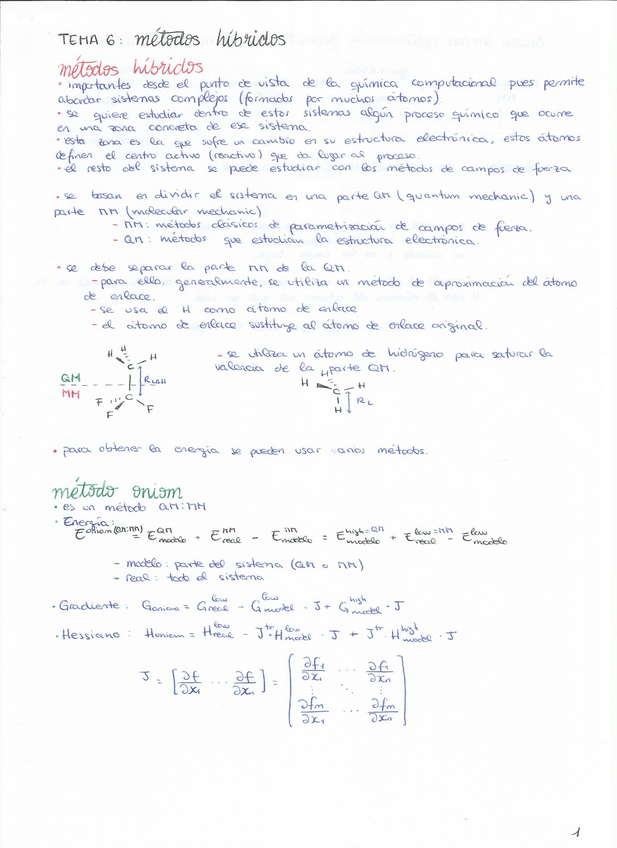 TEMA 6: métodos híbridos
métodos híbridos
• importantes desde el punto de vista de la química computacional pues permite
abordar sistemas complejos (formados por muchos átomos).
• se quiere estudiar dentro de estos sistemas algún proceso químico que ocurre
en una zona concreta de ese sistema.
• esta zona es la que sufre un cambio en su estructura electrónica, estos átomos
definen el centro activo (reactivo) que da lugar al proceso.
• el resto del sistema se puede estudiar con los métodos de campos de fuerza
• se basan en dividir el sistema en una parte QM (quantum mechanic) y una
parte MM (molecular mechanic)
- MM: métodos clásicos de parametrización de campos de fuerza.
- QM: métodos que estudian la estructura electrónica.
• se debe separar la parte MM de la QM.
- para ello, generalmente, se utiliza un método de aproximación del átomo
de enlace.
- se usa el H como átomo de enlace
- el átomo de enlace sustituye al átomo de enlace original.
- se utiliza un átomo de hidrógeno para saturar la
valencia de la parte QM.
H H H C
QM
MM
C F F F
H H H C
H R_L
• para obtener la energía se pueden usar varios métodos.
método oniom
• es un método QM:MM
• Energía:
E^oniom(QM:MM) = E^QM_modelo + E^MM_real - E^MM_modelo = E^high=QM_modelo + E^low=MM_real - E^low_modelo
- modelo: parte del sistema (QM o MM)
- real: todo el sistema
• Gradiente: G_oniom = G^low_real - G^low_model · J + G^high_model · J
• Hessiano: H_oniom = H^low_real - J^tr · H^low_model · J + J^tr · H^high_model · J
J = [∂f/∂x₁ ... ∂f/∂xn] = [∂f₁/∂x₁ ... ∂f₁/∂xn
⋮ ⋱ ⋮
∂fm/∂x₁ ... ∂fm/∂xn]
1